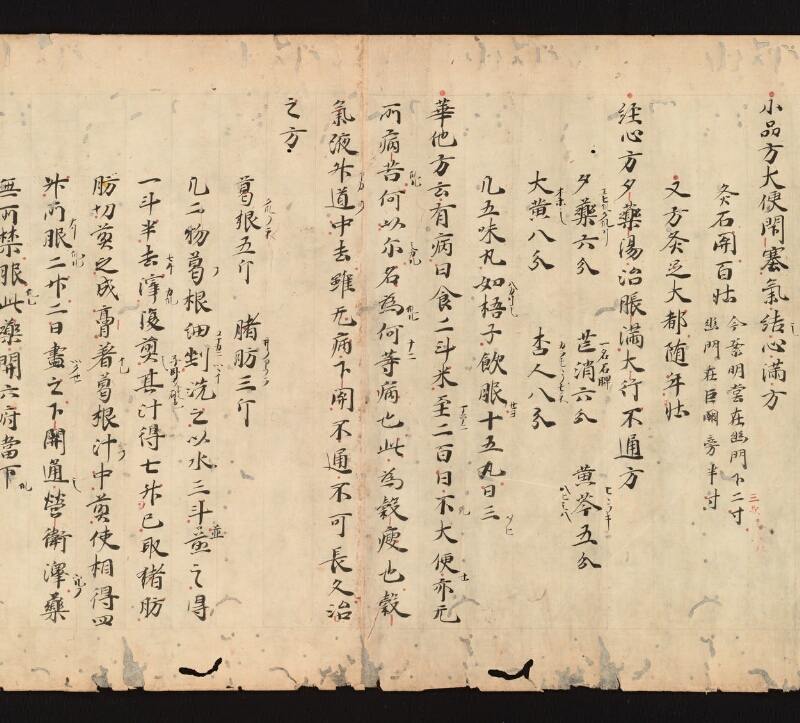 小品方大便閇塞氣結心滿方
灸石開百壯 今案明堂在幽門下二寸
幽門在巨闕旁半寸
又方灸足大都随年壯
経心方夕藥湯治脹滿大行不通方
夕藥六分 芒消六分 一名石脾 黄芩五分
大黄八分 杏人八分
凡五味丸如梧子飲服十五丸日三
華他方云有病日食二斗米至二百日不大便亦无
所病苦何以尔名為何等病也此為穀㾱也穀
氣液升道中去雖无病下閇不通不可長久治
之方
葛根五斤 猪肪三斤
凡二物葛根細剉洗之以水三斗煑之得
一斗半去滓復煎其汁得七升已取猪肪
肪切煎之成膏著葛根汁中煎使相得四
升所服二升二日盡之下開通營衛澤藥
無所禁服此藥開六府當下